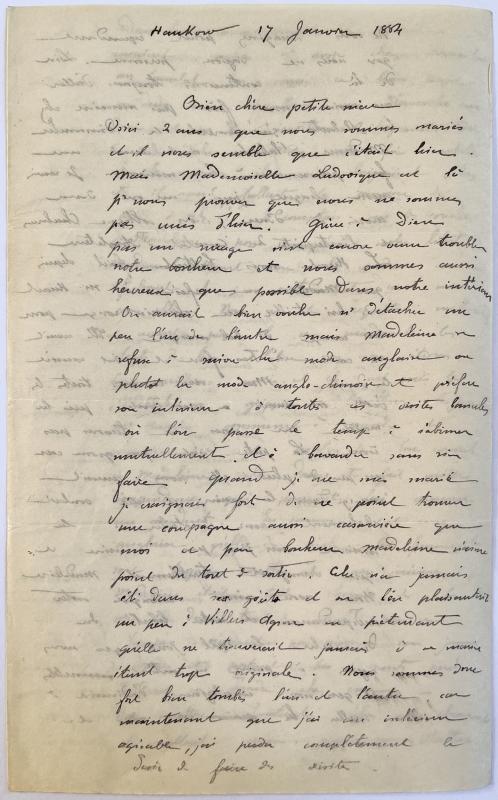 Hankow 17 Janvier 1884
Bien chère petite mère
Voici 2 ans que nous sommes mariés
et il nous semble que c'était hier.
Mais Mademoiselle Ludovique est là
pr nous prouver que nous ne sommes
pas unis d'hier. Grâce à Dieu
pas un nuage n'est encore venu troubler
notre bonheur et nous sommes aussi
heureux que possible dans notre intérieur
On aurait bien voulu s' détacher un
peu l'un de l'autre mais Madeleine se
refuse à suivre la mode anglaise ou
plutot la mode anglo-chinoise et préfère
son intérieur à toutes ces visites banales
où l'on passe le temps à s'abimer
mutuellement et à bavarder sans rien
faire Quand je me suis marié
je craignais fort de ne point trouver
une compagne aussi casanière que
moi et par bonheur Madeleine n'aime
point du tout à sortir. Cela n'a jamais
été dans ses goûts et on l'en plaisantait
un peu à Villers Agron en prétendant
qu'elle ne trouverait jamais à se marier
étant trop originale. Nous sommes donc
fort bien tombés l'un et l'autre car
maintenant que j'ai un intérieur
agréable, j'ai perdu complètement le
désir de faire des visites.